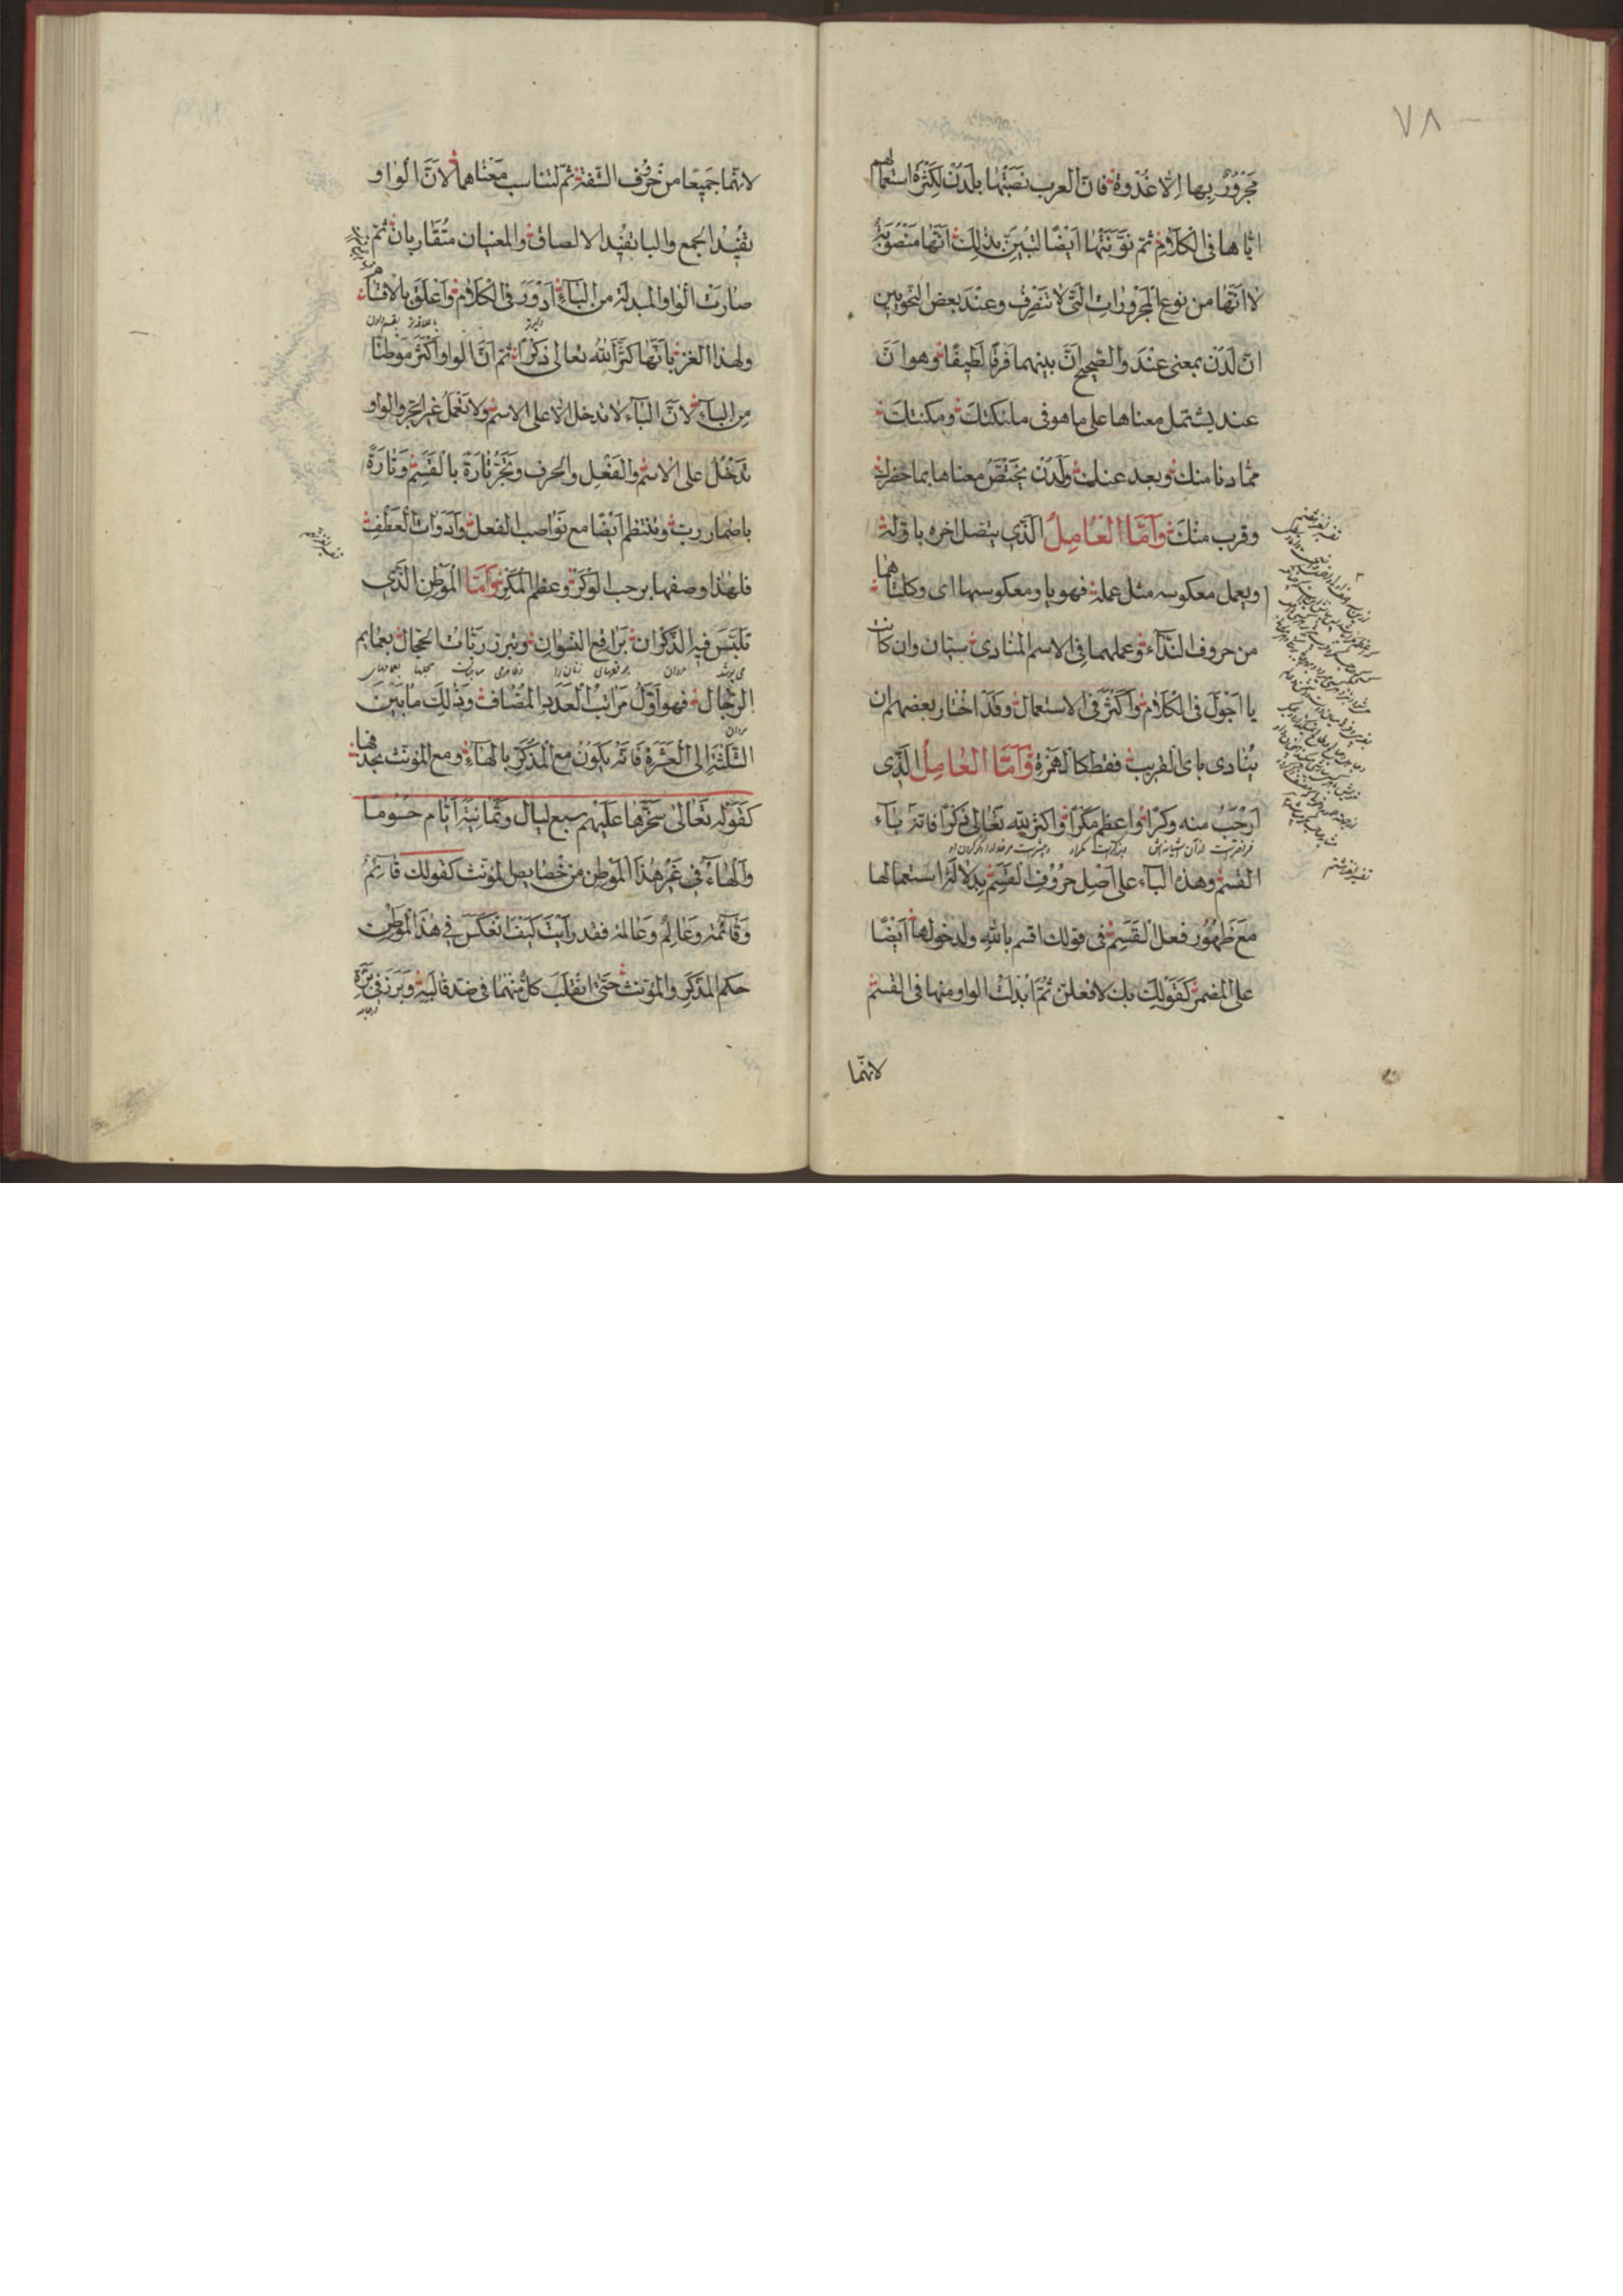 ٧٨
مجرور بها الا غدوة فان العرب نصبتها بلدن لكثرة استعمالهم
اياها فى الكلام ثم نونتها ايضا ليتبين بذلك انها منصوبة
لا انها من نوع المجرورات التى لا تنصرف وعند بعض النحويين
ان لدن بمعنى عند والصحيح ان بينهما فرقا لطيفا وهو ان
عند يشتمل معناها على ما هو فى ملكتك ومكنتك
مما دنا منك وبعد عنك ولدن يختص معناها بما حضرك
وقرب منك واما العامل الذى يتصل اخره باوله
ويعمل معكوسه مثل عمله فهو يا ومعكوسها اى وكلتاهما
من حروف النداء وعملهما فى الاسم المنادى سيان وان كانت
يا اجول فى الكلام واكثر فى الاستعمال وقد اختار بعضهم ان
ينادى باى القريب فقط كالهمزة واما العامل الذى
ارحب منه وكرا واعظم مكرا واكثر لله تعالى ذكرا فانه باء
القسم وهذه الباء على اصل حروف القسم بدلالة استعمالها
مع ظهور فعل القسم فى قولك اقسم بالله ولدخولها ايضا
على المضمر كقولك بك لافعلن ثم ابدلت الواو منها فى القسم
لانهما
لانهما جميعا من حروف الشفة ثم لتناسب معناهما لان الواو
تفيد الجمع والبا تفيد الالصاق والمعنيان متقاربان ثم
صارت الواو المبدلة من الباء ادور فى الكلام واعلق بالاقسام
ولهذا الغز بانها اكثر لله تعالى ذكرا ثم ان الواو اكثر موطنا
من الباء لان الباء لا تدخل الا على الاسم ولا تعمل غير الجر والواو
تدخل على الاسم والفعل والحرف وتجر تارة بالقسم وتارة
باضمار رب وتنتظم ايضا مع نواصب الفعل وادوات العطف
فلهذا وصفها برحب الوكر وعظم المكر واما الموطن الذى
تلبس فيه الذكران براقع النسوان وتبرز ربات الحجال بعمايم
الرجال فهو اول مراتب العدد المضاف وذلك ما بين
الثلثة الى العشرة فانه يكون مع المذكر بالهاء ومع المؤنث بحذفها
كقوله تعالى سخرها عليهم سبع ليال وثمانية ايام حسوما
والهاء فى غير هذا الموطن من خصايص المؤنث كقولك قائم
وقائمة وعالم وعالمة فقد رايت كيف انعكس فى هذا الموطن
حكم المذكر والمؤنث حتى انقلب كل منهما فى ضد قالبه وبرز فى بزة